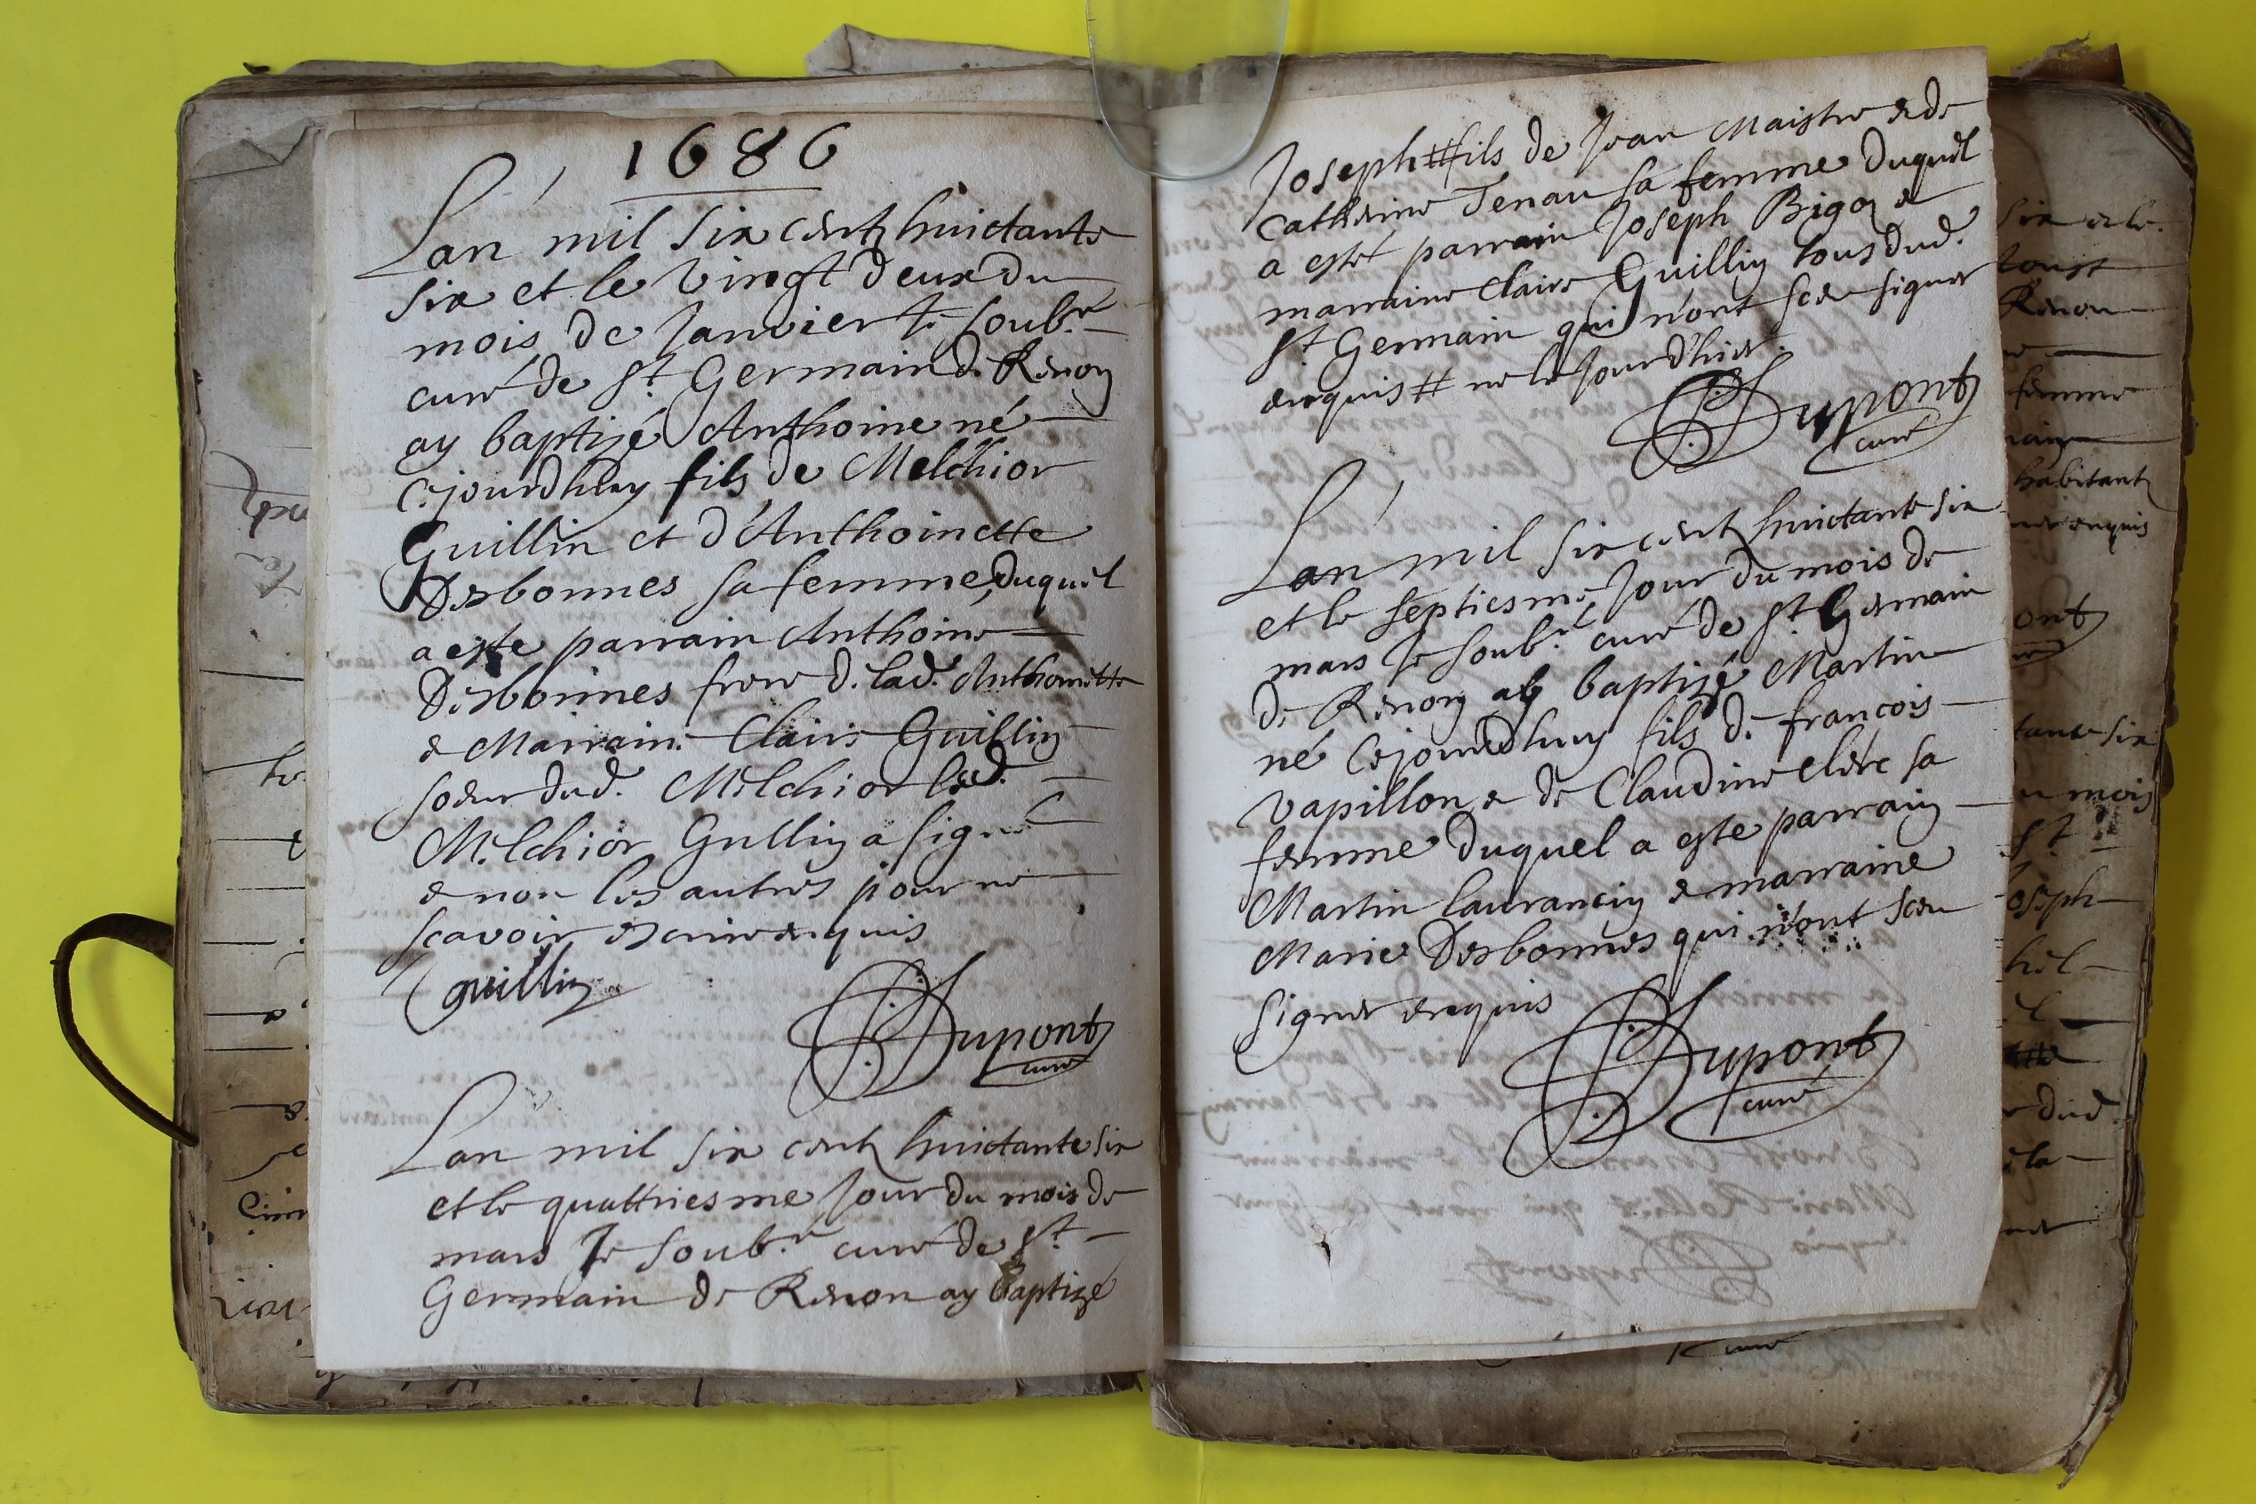 1686
Lan mil six centz huictante
six et le vingt deux du
mois de Janvier Je soub.né
curé de St Germain de Renon
ay baptizé Anthoine né
cejourdhuy fils de Melchior
Guillin et d'Anthoinette
Desbonnes sa femme, duquel
a este parrain Anthoine
Desbonnes frere de lad. Anthoinette
& Marraine Claire Guillin
soeur dud. Melchior led.
Melchior Gullin a signé
& non les autres pour ne
scavoir escrire enquis
Guillin
Dupont
curé
Lan mil six centz huictante six
et le quattriesme Jour du mois de
mars Je soub.né curé de St
Germain de Renon ay Baptizé
Joseph # fils de Jean Maistre & de
Catherine Tenau sa femme duquel
a esté parrain Joseph Bigoz &
marraine Claire Guillin tous dud.
St Germain qui n'ont sceu signer
enquis # né le Jourd'hier.
Dupont
curé
Lan mil six centz huictante six
et le septiesme Jour du mois de
mars Je soub.né curé de St Germain
de Renon ay baptizé Martin
né cejourdhuy fils de francois
Vapillon & de Claudine Clerc sa
femme duquel a este parrain
Martin Laurancin & marraine
Marie Desbonnes qui n'ont sceu
signer enquis
Dupont
curé
six & le
Renon
femme
habitantz
enquis
ont
tante six
u mois
St
oseph
dud